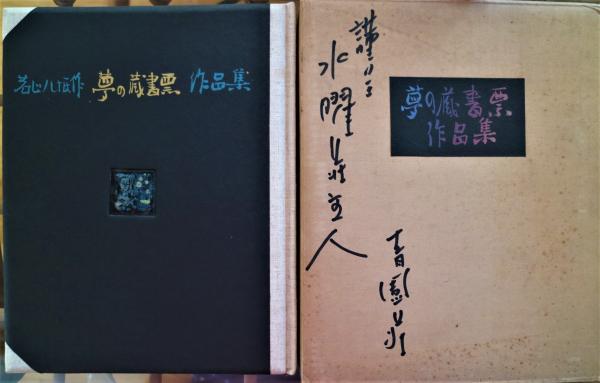 若山八十氏作 夢の蔵書票 作品集
謹呈
水曜荘主人
青園荘
夢の蔵書票
作品集